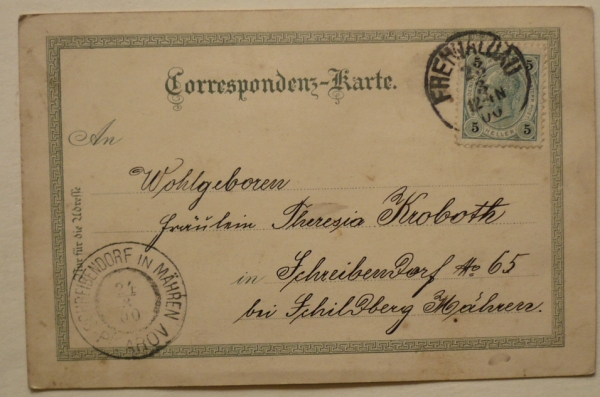 Correspondenz-Karte.
FREIWALDAU
5
12-4N
00
5 5
5 HELLER 5
An
Wohlgeboren
Fräulein Theresia Kroboth
in Schreibendorf No 65
bei Schildberg Mähren.
Nur für die Adresse
SCHREIBENDORF IN MÄHREN
24
00